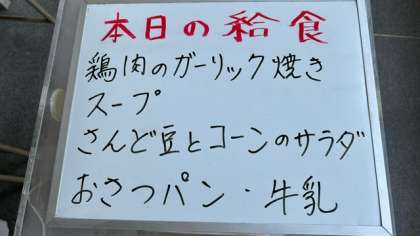 本日の給食
鶏肉のガーリック焼き
スープ
さんど豆とコーンのサラダ
おさつパン・牛乳